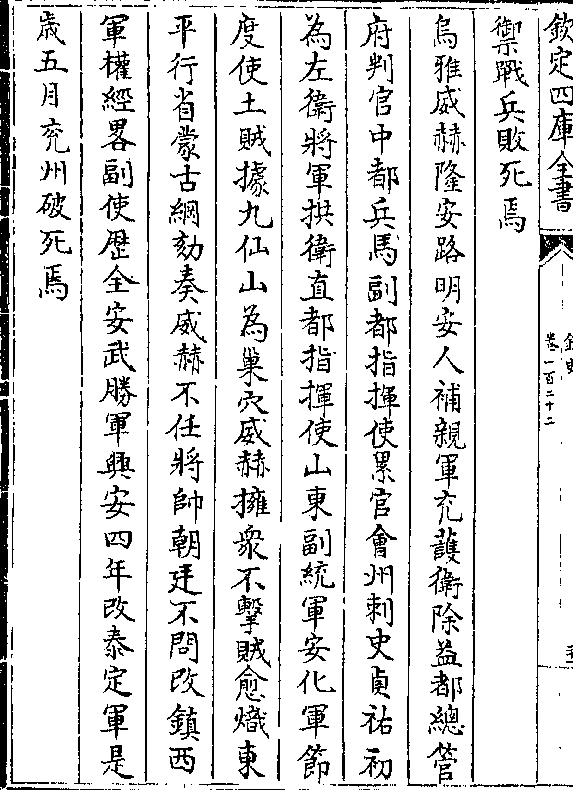 欽定四庫全書
金史
卷一百二十二
禦戰兵敗死焉
烏雅威赫隆安路明安人補親軍充䕶衛除益都總管
府判官中都兵馬副都指揮使累官會州刺史貞祐初
為左衛將軍拱衛直都指揮使山東副統軍安化軍節
度使土賊據九仙山為巢穴威赫擁衆不擊賊愈熾東
平行省蒙古綱劾奏威赫不任將帥朝廷不問改鎮西
軍權經畧副使歴全安武勝軍興安四年改泰定軍是
歲五月兖州破死焉